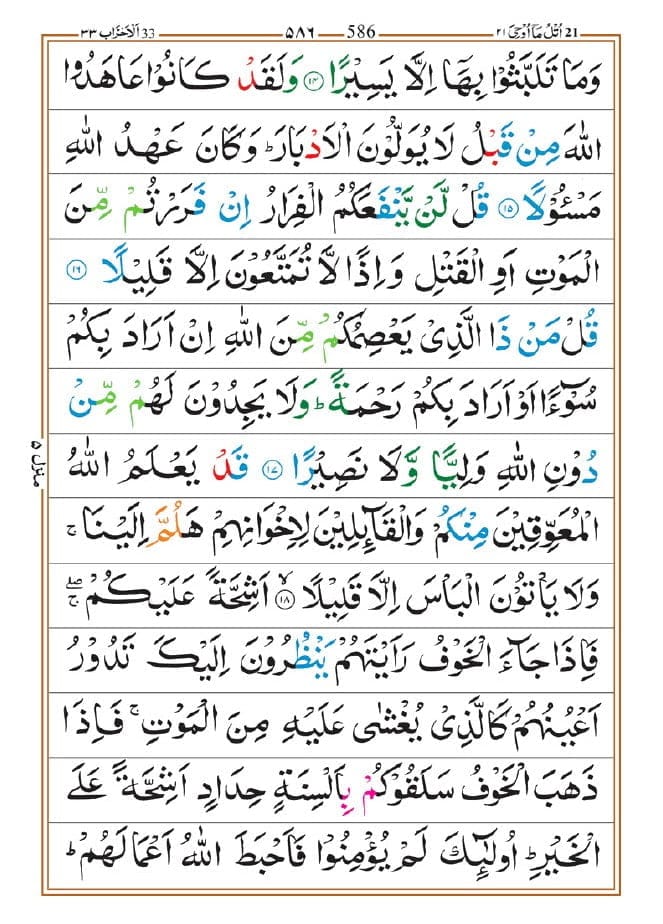 21 اُتْلُ مَاۤ اُوْحِیَ ۲۱ 586 ۵۸۶ 33 اَلْاَحْزَاب ۳۳
وَمَا تَلَبَّثُوْا بِهَاۤ اِلَّا يَسِيْرًا ۝۱۴ وَلَقَدْ كَانُوْا عَاهَدُوا
اللّٰهَ مِنْ قَبْلُ لَا يُوَلُّوْنَ الْاَدْبَارَ ؕ وَكَانَ عَهْدُ اللّٰهِ
مَسْـُٔوْلًا ۝۱۵ قُلْ لَّنْ يَّنْفَعَكُمُ الْفِرَارُ اِنْ فَرَرْتُمْ مِّنَ
الْمَوْتِ اَوِ الْقَتْلِ وَاِذًا لَّا تُمَتَّعُوْنَ اِلَّا قَلِيْلًا ۝۱۶
قُلْ مَنْ ذَا الَّذِيْ يَعْصِمُكُمْ مِّنَ اللّٰهِ اِنْ اَرَادَ بِكُمْ
سُوْٓءًا اَوْ اَرَادَ بِكُمْ رَحْمَةً ؕ وَلَا يَجِدُوْنَ لَهُمْ مِّنْ
دُوْنِ اللّٰهِ وَلِيًّا وَّلَا نَصِيْرًا ۝۱۷ قَدْ يَعْلَمُ اللّٰهُ
الْمُعَوِّقِيْنَ مِنْكُمْ وَالْقَآئِلِيْنَ لِاِخْوَانِهِمْ هَلُمَّ اِلَيْنَا ۚ
وَلَا يَاْتُوْنَ الْبَاْسَ اِلَّا قَلِيْلًا ۝۱۸ۙ اَشِحَّةً عَلَيْكُمْ ۖۚ
فَاِذَا جَآءَ الْخَوْفُ رَاَيْتَهُمْ يَنْظُرُوْنَ اِلَيْكَ تَدُوْرُ
اَعْيُنُهُمْ كَالَّذِيْ يُغْشٰى عَلَيْهِ مِنَ الْمَوْتِ ۚ فَاِذَا
ذَهَبَ الْخَوْفُ سَلَقُوْكُمْ بِاَلْسِنَةٍ حِدَادٍ اَشِحَّةً عَلَى
الْخَيْرِ ؕ اُولٰٓئِكَ لَمْ يُؤْمِنُوْا فَاَحْبَطَ اللّٰهُ اَعْمَالَهُمْ ؕ
منزل ۵